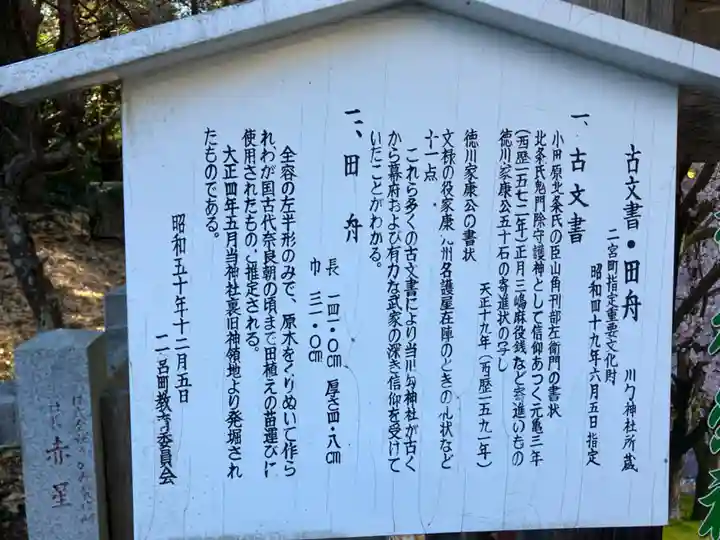 古文書・田舟
川勾神社所蔵
二宮町指定重要文化財
昭和四十九年六月五日指定
一、古文書
小田原北条氏の臣山角刑部左衛門の書状
北条氏鬼門除守護神として信仰あつく元亀三年
(西歴一五七二年)正月三嶋麻役銭など寄進いもの
徳川家康公五十石の寄進状の写し
天正十九年(西歴一五九一年)
徳川家康公の書状
文禄の役家康九州名護屋在陣のときの礼状など
十一点
これら多くの古文書により当川勾神社が古く
から幕府および有力な武家の深き信仰を受けて
いたことがわかる。
二、田舟
長 一四一・〇㎝ 厚さ四・八㎝
巾 三一・〇㎝
全容の左半形のみで、原木をくりぬいて作ら
れわが国古代奈良朝の頃まで田植えの苗運びに
使用されたものと推定される。
大正四年五月当神社裏旧神領地より発掘され
たものである。
昭和五十年十二月五日
二宮町教育委員会
赤星